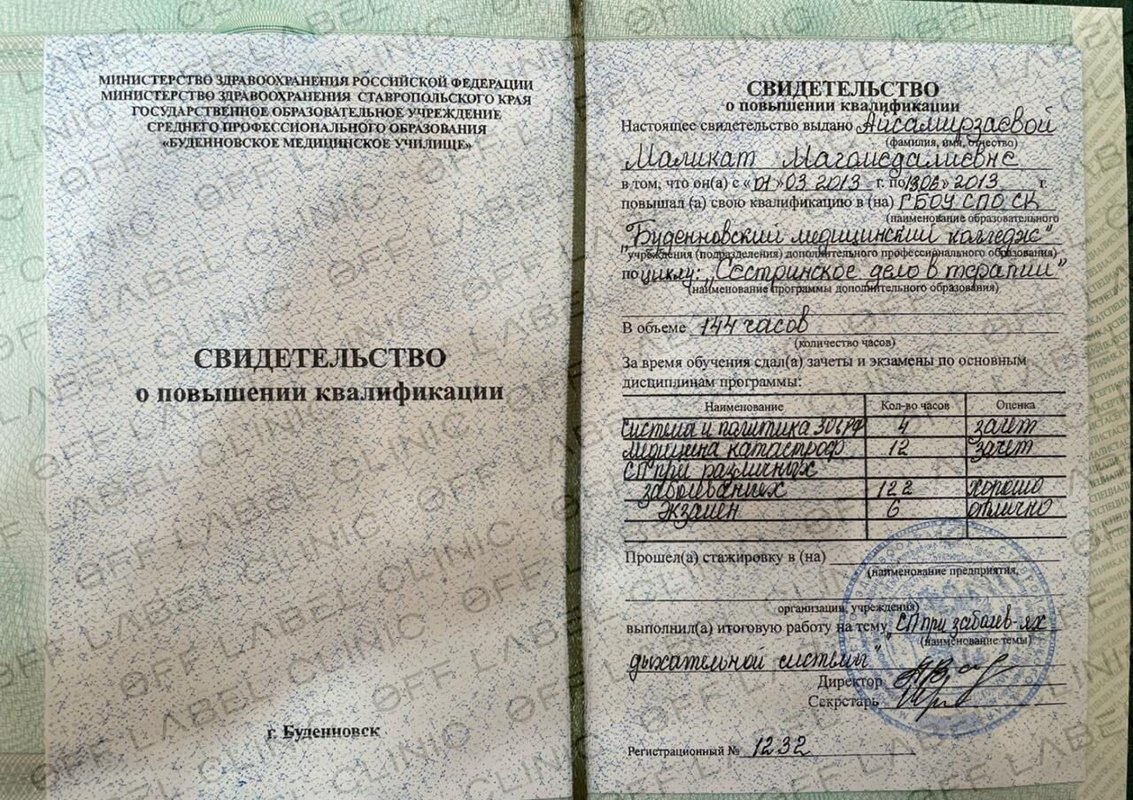 МИНИСТЕРСТВО ЗДРАВООХРАНЕНИЯ РОССИЙСКОЙ ФЕДЕРАЦИИ
МИНИСТЕРСТВО ЗДРАВООХРАНЕНИЯ СТАВРОПОЛЬСКОГО КРАЯ
ГОСУДАРСТВЕННОЕ ОБРАЗОВАТЕЛЬНОЕ УЧРЕЖДЕНИЕ
СРЕДНЕГО ПРОФЕССИОНАЛЬНОГО ОБРАЗОВАНИЯ
«БУДЕННОВСКОЕ МЕДИЦИНСКОЕ УЧИЛИЩЕ»
СВИДЕТЕЛЬСТВО
о повышении квалификации
г. Буденновск
СВИДЕТЕЛЬСТВО
о повышении квалификации
Настоящее свидетельство выдано Айсамирзаевой
(фамилия, имя, отчество)
Маликат Магомедалиевне
в том, что он(а) с «01» 03 2013 г. по 2013 г.
повышал (а) свою квалификацию в (на) ГБОУ СПО СК
(наименование образовательного
"Буденновский медицинский колледж"
учреждения (подразделения) дополнительного профессионального образования)
по циклу: "Сестринское дело в терапии"
(наименование программы дополнительного образования)
В объеме 144 часов
(количество часов)
За время обучения сдал(а) зачеты и экзамены по основным
дисциплинам программы:
Наименование Кол-во часов Оценка
Система и политика ЗО в РФ 4 зачет
Медицина катастроф 12 зачет
СП при различных
заболеваниях 122 хорошо
Экзамен 6 отлично
Прошел(а) стажировку в (на)
(наименование предприятия,
организации, учреждения)
выполнил(а) итоговую работу на тему "СП при заболев-ях
(наименование темы)
дыхательной системы"
Директор
Секретарь
Регистрационный № 1232
ƟFF LABEL CLINIC